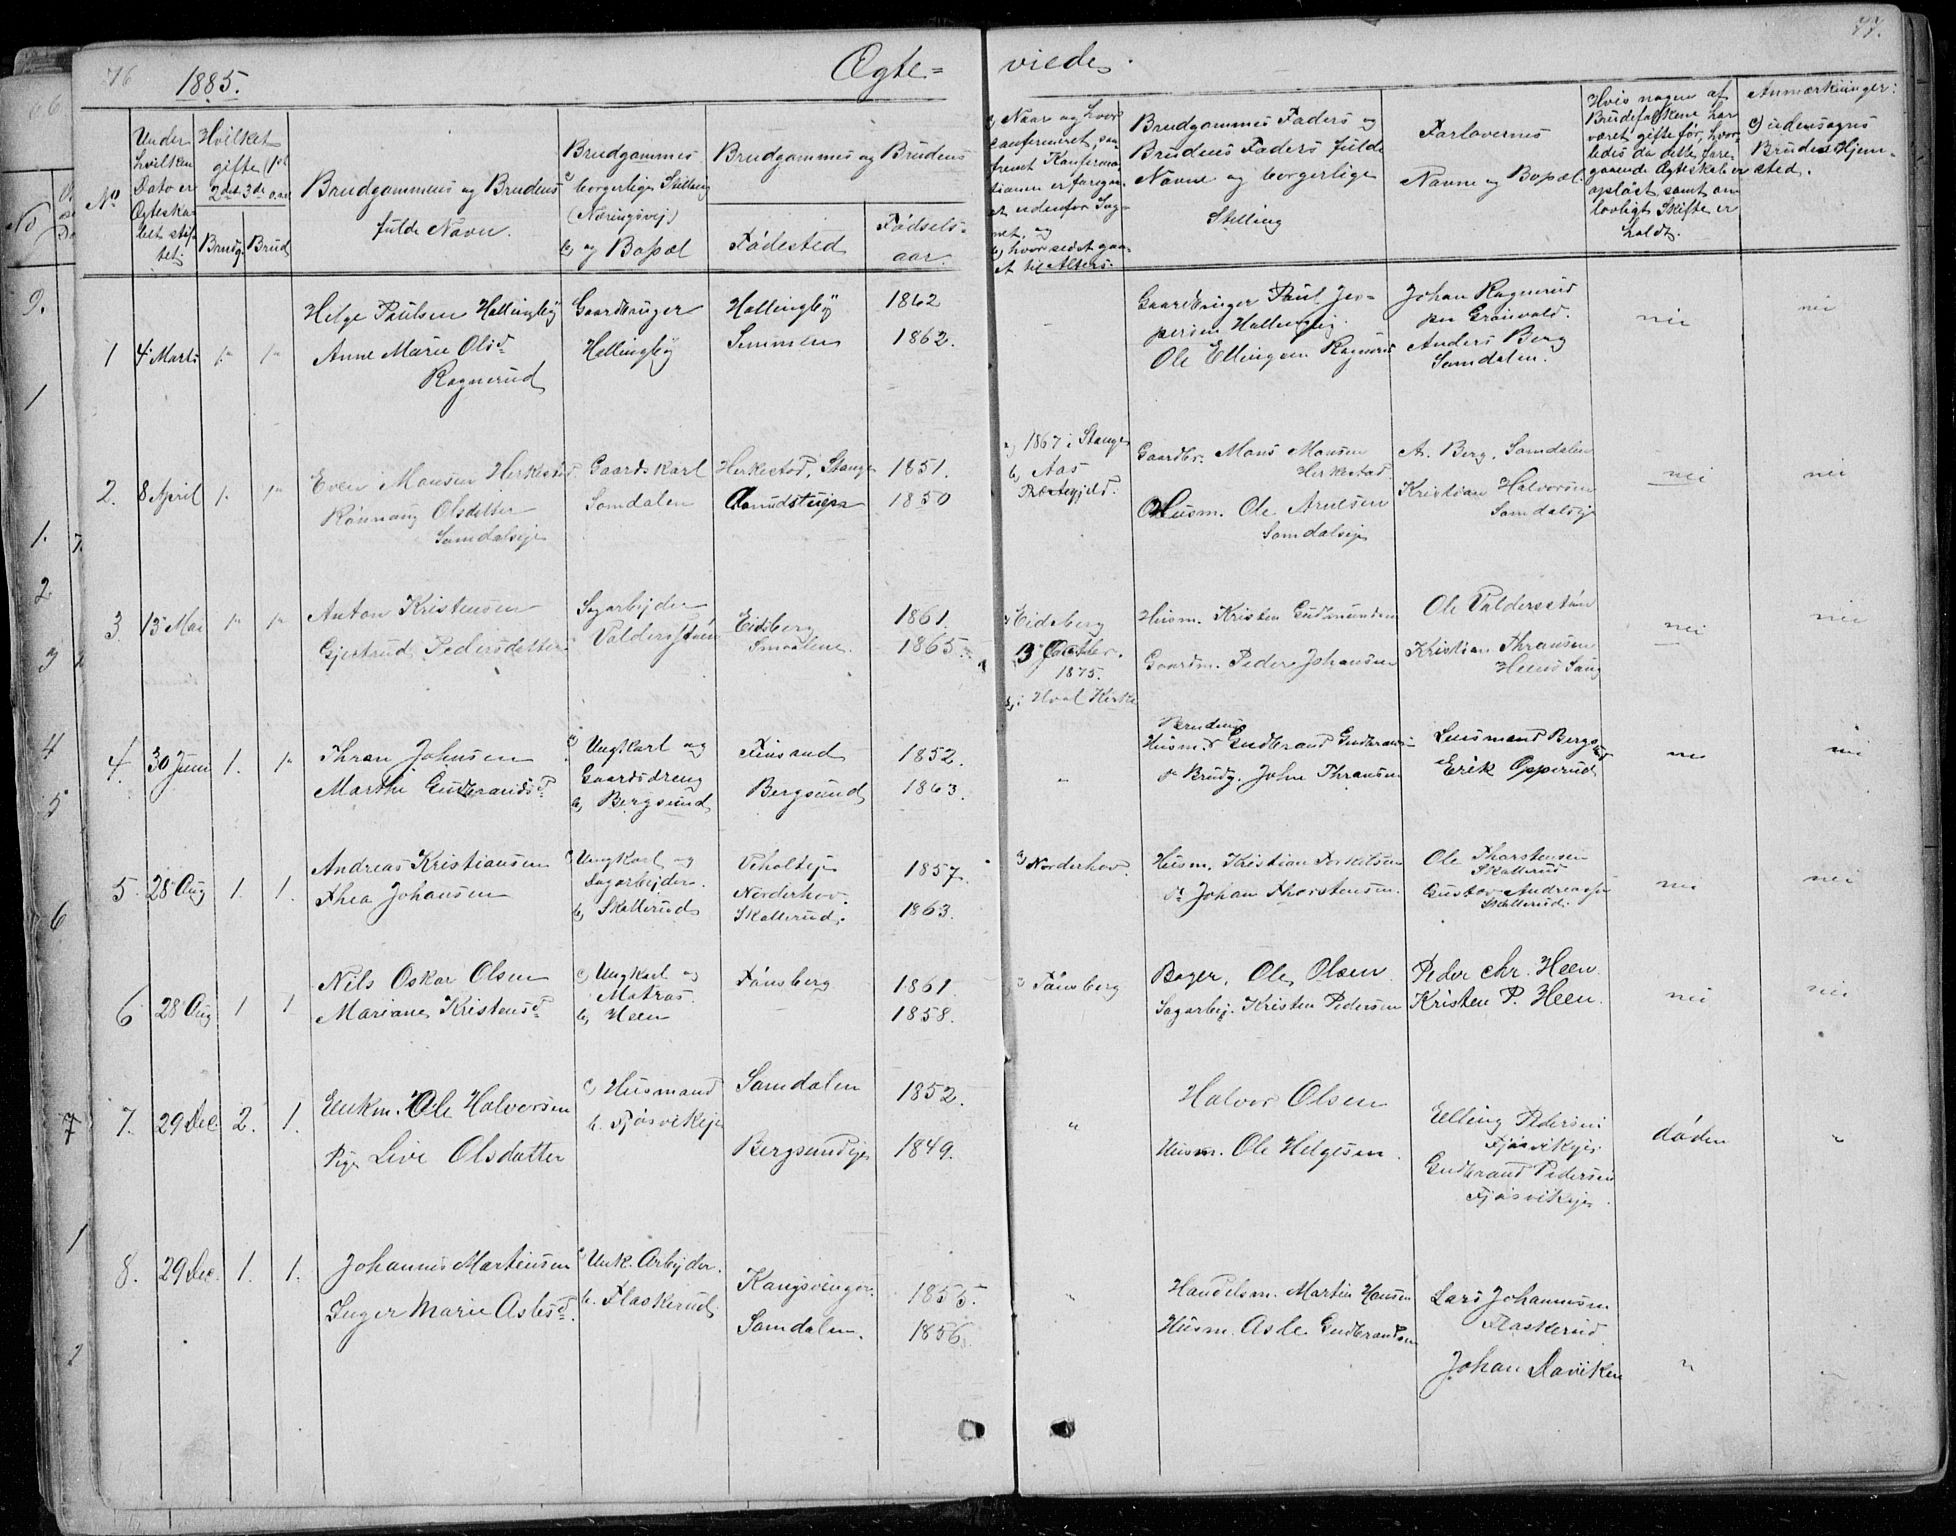 76
1885.
Ægte=
viede.
77.
No
Under hvilken Dato er Ægteska- bet stif- tet.
Hvilket gifte (1ste 2det 3die o.s.v.
Brudg. Brud
Brudgommens og Brudens fulde Navn.
Brudgommens
a) borgerlige Stilling
(Næringsvej)
b) og Bopæl
Brudgommens og Brudens
Fødested
Fødsels-
aar.
a) Naar og hvor
konfirmeret, saa-
fremt Konfirma-
tionen er foregaa-
et udenfor Sog-
net, og
b) hvor sidst gaa-
et til Alters.
Brudgommens Faders og
Brudens Faders fulde
Navne og borgerlige
Stilling
Forlovernes
Navne og Bopæl.
Hvis nogen af
Brudefolkene har
været gifte før, hvor-
ledes da dette fore-
gaaende Ægteskab er
opløst samt om
lovligt Skifte er
holdt.
Anmærkninger:
c) udensogns
Brudes Hjem-
sted.
1 4 Marts 1ste 1ste
Helge Paulsen Hallingby
Anne Marie Olsd.
Ragnerud
Gaardbruger
Hallingby
Hallingby
Semmen
1862
1862.
Gaardbruger Paul Jes-
persen Hallingby.
Ole Ellingsen Ragnerud
Johan Ragnerud
per Grønvold.
Anders Berg
Somdalen.
nei
nei
2. 8 April 1. 1ste
Even Monsen Herkestad
Rønnaug Olsdatter
Somdalseje
Gaardskarl
Somdalen
Herkestad, Stange
1851.
1850
a) 1867 i Stange
b) Aas
Præstegjeld.
Gaardbr. Mons Monsen
Herkestad
Husm. Ole Arnesen
Somdalseje
A. Berg, Somdalen
Kristian Halvorsen
Somdalseje
nei
nei
3. 13 Mai 1ste 1ste
Anton Kristensen
Gjertrud Pedersdatter
Sagarbejder
Valderstøen
Eidsberg
Smaalene.
1861.
1865.
a) Eidsberg
3 Octbr.
1875.
b) i Hval Kirke
Husm. Kristen Gudmundsen
Gaardm. Peder Johansen
Ole Valdersstøen
Kristian Thransen
Heens Saug
nei
nei
4. 30 Juni 1. 1ste
Thran Johnsen
Marthe Gudbrandsd.
a) Ungkarl og
Gaardsdreng
b) Bergsund
Finsand
Bergsund
1852.
1863.
"
Brudens
Husm. Gudbrand Gudbrands-
Brudg. John Thransen
Lensmand Bergsund
Erik Opperud
nei
nei
5. 28 Aug 1. 1.
Andreas Kristiansen
Thea Johansen
a) Ungkarl og
Sagarbejder.
b) Skollerud
Veholteje
Norderhov.
Skollerud.
1857.
1863.
a) Norderhov.
Husm. Kristian
Johan Thorstensen.
Ole Thorstensen
Skollerud
Gustav Andreassen
Skollerud.
nei
nei
6 28 Aug 1 1
Nils Oskar Olsen
Mariane Kristensd.
a) Ungkarl og
Matros.
b) Heen
Tønsberg
1861.
1858.
a) Tønsberg
Bager, Ole Olsen
Sagarbej. Kristen Pedersen
Peder Chr. Heen.
Kristen P. Heen.
nei
nei
7. 29 Dec 2. 1.
Enkm. Ole Halvorsen
Pige Live Olsdatter
a) Husmand
b. Fjøsvikeje
Somdalen
Bergsundeje
1852.
1849.
"
Halvor Olsen
Husm. Ole Helgesen
Elling Pedersen
Fjøsvikeje
Gudbrand Pedersen
Fjøsvikeje.
døden
"
8. 29 Dec. 1. 1.
Johannes Martinsen
Inger Marie Aslesd.
a) Unk. Arbejder.
b. Flaskerud.
Kongsvinger.
Somdalen.
1855.
1856.
"
Handelsm. Martin Hansen
Husm. Asle Gudbrandsen
Lars Johannesen
Flaskerud
Johan Daviken
"
"